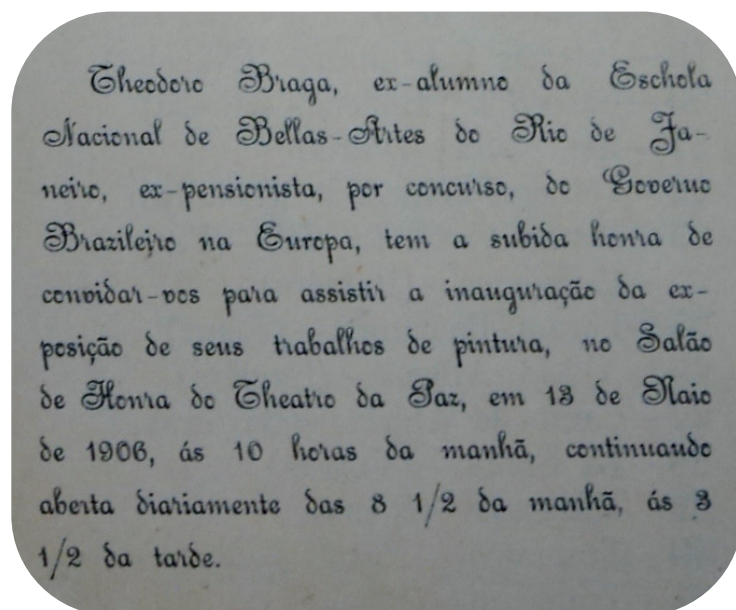 Theodoro Braga, ex-alumno da Eschola
Nacional de Bellas-Artes do Rio de Ja-
neiro, ex-pensionista, por concurso, do Governo
Brazileiro na Europa, tem a subida honra de
convidar-vos para assistir a inauguração da ex-
posição de seus trabalhos de pintura, no Salão
de Honra do Theatro da Paz, em 13 de Maio
de 1906, ás 10 horas da manhã, continuando
aberta diariamente das 8 1/2 da manhã, ás 3
1/2 da tarde.